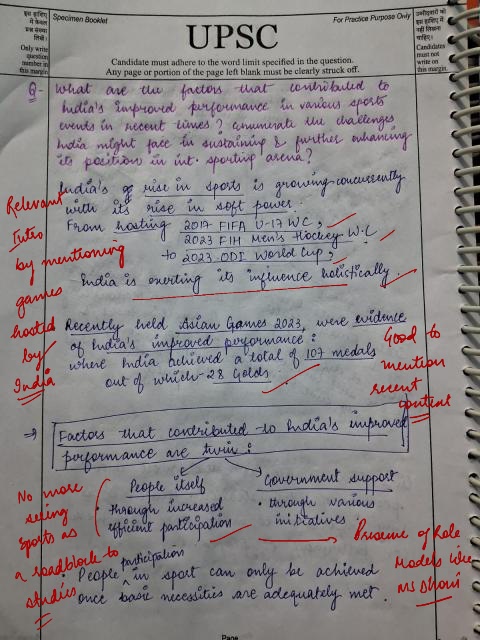 इस हाशिए
में केवल
प्रश्न संख्या
लिखें।
Only write
question
number in
this margin
Specimen Booklet
For Practice Purpose Only
उम्मीदवारों को
इस हाशिए में
नहीं लिखना
चाहिए।
Candidates
must not
write on
this margin
UPSC
Candidate must adhere to the word limit specified in the question.
Any page or portion of the page left blank must be clearly struck off.
Q- What are the factors that contributed to
India's improved performance in various sports
events in recent times? enumerate the challenges
India might face in sustaining & further enhancing
its positions in int. sporting arena?
India's rise in sports is growing concurrently
with its rise in soft power.
From hosting 2017 FIFA U-17 WC,
2023 FIH Men's Hockey W.C
to 2023 ODI World Cup,
India is exerting its influence holistically.
Relevant
Intro
by mentioning
games
hosted
by
India
Recently held Asian Games 2023, were evidence
of India's improved performance:
where India achieved a total of 107 medals
out of which - 28 Golds.
Good to
mention
recent
content
⇒ Factors that contributed to India's improved
performance are twin:
People itself
• through increased
efficient participation
Government support
• through various
initiatives
No more
seeing
sports as
a roadblock to
studies
Presence of Role
Models like
MS Dhoni
• People participation in sport can only be achieved
once basic necessities are adequately met.
Page